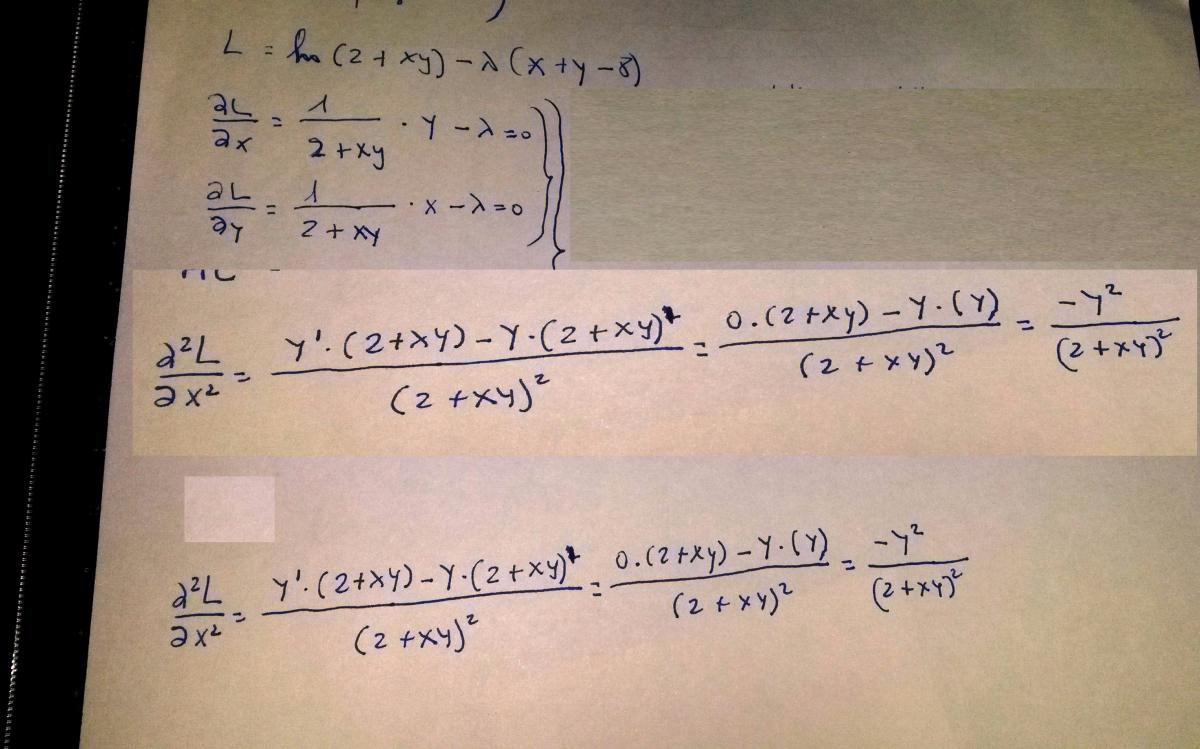 L = ln (2 + xy) - λ (x + y - 8)
∂L/∂x = 1/(2 + xy) · y - λ = 0
∂L/∂y = 1/(2 + xy) · x - λ = 0
∂²L/∂x² = (y'. (2 + xy) - y · (2 + xy)')/(2 + xy)² = (0. (2 + xy) - y · (y))/(2 + xy)² = -y²/(2 + xy)²
∂²L/∂x² = (y'. (2 + xy) - y · (2 + xy)')/(2 + xy)² = (0. (2 + xy) - y · (y))/(2 + xy)² = -y²/(2 + xy)²